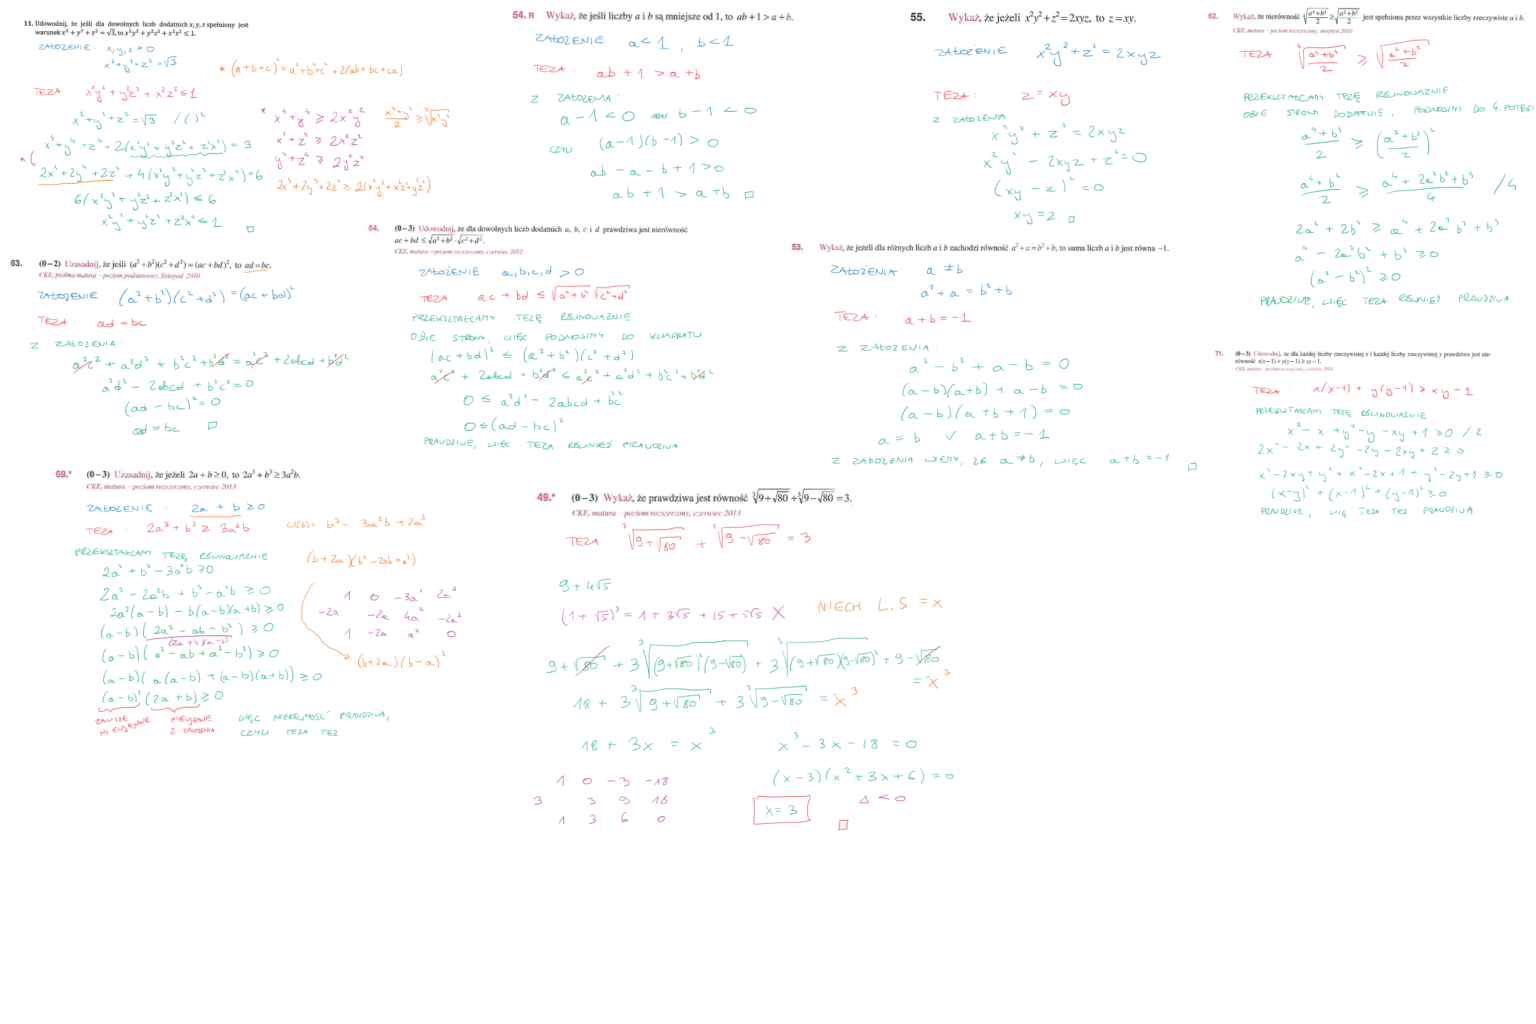 11. Udowodnij, że jeśli dla dowolnych liczb dodatnich x, y, z spełniony jest
warunek x² + y² + z² = √3, to x²y² + y²z² + x²z² ≤ 1.
ZAŁOŻENIE : x, y, z > 0
x² + y² + z² = √3
* (a+b+c)² = a² + b² + c² + 2(ab + bc + ca)
TEZA : x²y² + y²z² + x²z² ≤ 1
x² + y² + z² = √3 / ( )²
x⁴ + y⁴ + z⁴ + 2(x²y² + y²z² + z²x²) = 3
2x⁴ + 2y⁴ + 2z⁴ + 4(x²y² + y²z² + z²x²) = 6
6(x²y² + y²z² + z²x²) ≤ 6
x²y² + y²z² + z²x² ≤ 1 □
* x⁴ + y⁴ ≥ 2x²y²
x⁴ + z⁴ ≥ 2x²z²
y⁴ + z⁴ ≥ 2y²z²
2x⁴ + 2y⁴ + 2z⁴ ≥ 2(x²y² + x²z² + y²z²)
54. R Wykaż, że jeśli liczby a i b są mniejsze od 1, to ab + 1 > a + b.
ZAŁOŻENIE a < 1 , b < 1
TEZA : ab + 1 > a + b
Z ZAŁOŻENIA :
a - 1 < 0 ORAZ b - 1 < 0
CZYLI (a-1)(b-1) > 0
ab - a - b + 1 > 0
ab + 1 > a + b □
55. Wykaż, że jeżeli x²y² + z² = 2xyz, to z = xy.
ZAŁOŻENIE x²y² + z² = 2xyz
TEZA : z = xy
Z ZAŁOŻENIA
x²y² + z² = 2xyz
x²y² - 2xyz + z² = 0
(xy - z)² = 0
xy = z □
62. Wykaż, że nierówność ⁴√((a⁴+b⁴)/2) ≥ √((a²+b²)/2) jest spełniona przez wszystkie liczby rzeczywiste a i b.
CKE, matura – poziom rozszerzony, sierpień 2010
TEZA ⁴√((a⁴+b⁴)/2) ≥ √((a²+b²)/2)
PRZEKSZTAŁCAMY TEZĘ RÓWNOWAŻNIE :
OBIE STRONY DODATNIE, PODNOSIMY DO 4. POTĘGI
(a⁴+b⁴)/2 ≥ ((a²+b²)/2)²
(a⁴+b⁴)/2 ≥ (a⁴ + 2a²b² + b⁴)/4 /4
2a⁴ + 2b⁴ ≥ a⁴ + 2a²b² + b⁴
a⁴ - 2a²b² + b⁴ ≥ 0
(a² - b²)² ≥ 0
PRAWDZIWE, WIĘC TEZA RÓWNIEŻ PRAWDZIWA
63. (0–2) Uzasadnij, że jeśli (a² + b²)(c² + d²) = (ac + bd)², to ad = bc.
CKE, próbna matura – poziom podstawowy, listopad 2010
ZAŁOŻENIE (a² + b²)(c² + d²) = (ac + bd)²
TEZA : ad = bc
Z ZAŁOŻENIA :
a²c² + a²d² + b²c² + b²d² = a²c² + 2abcd + b²d²
a²d² - 2abcd + b²c² = 0
(ad - bc)² = 0
ad = bc □
64. (0–3) Udowodnij, że dla dowolnych liczb dodatnich a, b, c i d prawdziwa jest nierówność
ac + bd ≤ √(a² + b²) · √(c² + d²).
CKE, matura – poziom rozszerzony, czerwiec 2012
ZAŁOŻENIE a, b, c, d > 0
TEZA : ac + bd ≤ √(a² + b²) √(c² + d²)
PRZEKSZTAŁCAMY TEZĘ RÓWNOWAŻNIE
OBIE STRONY, WIĘC PODNOSIMY DO KWADRATU
(ac + bd)² ≤ (a² + b²)(c² + d²)
a²c² + 2abcd + b²d² ≤ a²c² + a²d² + b²c² + b²d²
0 ≤ a²d² - 2abcd + b²c²
0 ≤ (ad - bc)²
PRAWDZIWE, WIĘC TEZA RÓWNIEŻ PRAWDZIWA
53. Wykaż, że jeżeli dla różnych liczb a i b zachodzi równość a² + a = b² + b, to suma liczb a i b jest równa −1.
ZAŁOŻENIA : a ≠ b
a² + a = b² + b
TEZA : a + b = -1
Z ZAŁOŻENIA :
a² - b² + a - b = 0
(a-b)(a+b) + a - b = 0
(a-b)(a + b + 1) = 0
a = b ∨ a + b = -1
Z ZAŁOŻENIA WIEMY, ŻE a ≠ b, WIĘC a + b = -1 □
71. (0–3) Udowodnij, że dla każdej liczby rzeczywistej x i każdej liczby rzeczywistej y prawdziwa jest nie-
równość x(x−1) + y(y−1) ≥ xy − 1.
TEZA : x(x-1) + y(y-1) > xy - 1
PRZEKSZTAŁCAMY TEZĘ RÓWNOWAŻNIE
x² - x + y² - y - xy + 1 ≥ 0 / 2
2x² - 2x + 2y² - 2y - 2xy + 2 ≥ 0
x² - 2xy + y² + x² - 2x + 1 + y² - 2y + 1 ≥ 0
(x-y)² + (x-1)² + (y-1)² ≥ 0
PRAWDZIWE, WIĘC TEZA TEŻ PRAWDZIWA
69.* (0–3) Uzasadnij, że jeżeli 2a + b ≥ 0, to 2a³ + b³ ≥ 3a²b.
CKE, matura – poziom rozszerzony, czerwiec 2013
ZAŁOŻENIE : 2a + b ≥ 0
TEZA : 2a³ + b³ ≥ 3a²b
W(b) = b³ - 3a²b + 2a³
PRZEKSZTAŁCAMY TEZĘ RÓWNOWAŻNIE
2a³ + b³ - 3a²b ≥ 0
2a³ - 2a²b + b³ - a²b ≥ 0
2a²(a-b) - b(a-b)(a+b) ≥ 0
(a-b)(2a² - ab - b²) ≥ 0
(2a+b)(a-b)
(a-b)(a² - ab + a² - b²) ≥ 0
(a-b)(a(a-b) + (a-b)(a+b)) ≥ 0
(a-b)²(2a + b) ≥ 0
ZAWSZE NIEUJEMNE
NIEUJEMNE Z ZAŁOŻENIA
WIĘC NIERÓWNOŚĆ PRAWDZIWA,
CZYLI TEZA TEŻ
(b + 2a)(b² - 2ab + a²)
1 0 -3a² 2a³
-2a -2a 4a² -2a³
1 -2a a² 0
(b+2a)(b-a)²
49.* (0–3) Wykaż, że prawdziwa jest równość ³√(9+√80) + ³√(9−√80) = 3.
CKE, matura – poziom rozszerzony, czerwiec 2013
TEZA ³√(9+√80) + ³√(9-√80) = 3
9 + 4√5
(1 + √5)³ = 1 + 3√5 + 15 + 5√5 X
NIECH L.S = x
9 + √80 + 3 ³√((9+√80)²(9-√80)) + 3 ³√((9+√80)(9-√80)²) + 9 - √80 = x³
18 + 3 ³√(9+√80) + 3 ³√(9-√80) = x³
18 + 3x = x³
x³ - 3x - 18 = 0
(x-3)(x² + 3x + 6) = 0
Δ < 0
x = 3
□
1 0 -3 -18
3 3 9 18
1 3 6 0